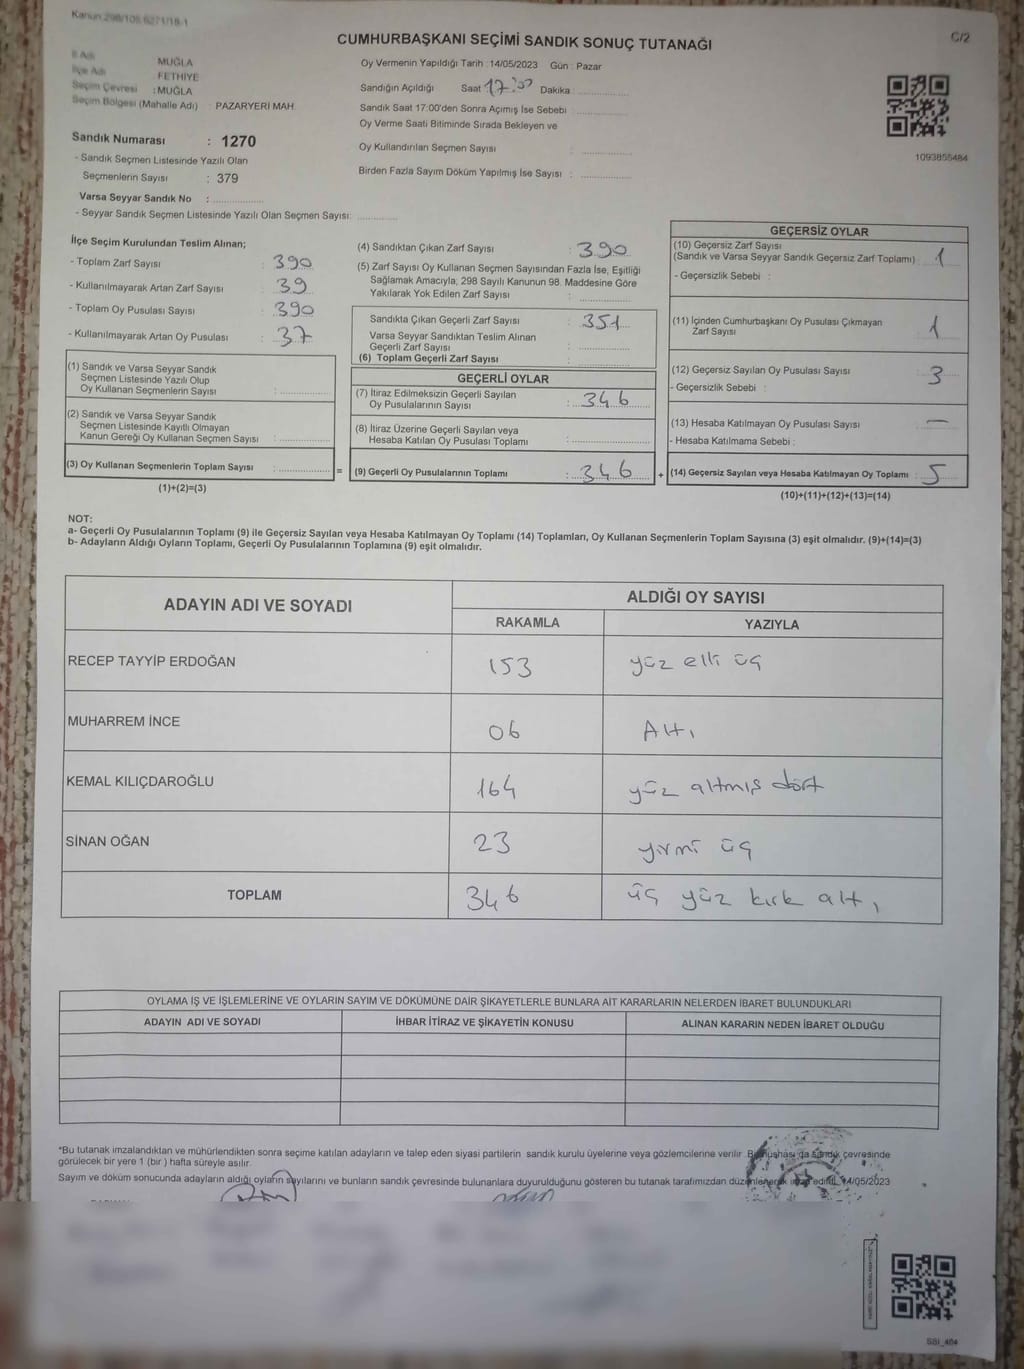 Kanun 298/105 6271/18-1
C/2
CUMHURBAŞKANI SEÇİMİ SANDIK SONUÇ TUTANAĞI
İl Adı MUĞLA
İlçe Adı FETHİYE
Seçim Çevresi : MUĞLA
Seçim Bölgesi (Mahalle Adı) : PAZARYERİ MAH.
Oy Vermenin Yapıldığı Tarih : 14/05/2023 Gün : Pazar
Sandığın Açıldığı Saat 17:00 Dakika
Sandık Saat 17:00'den Sonra Açımış İse Sebebi
Oy Verme Saati Bitiminde Sırada Bekleyen ve
Oy Kullandırılan Seçmen Sayısı :
Birden Fazla Sayım Döküm Yapılmış İse Sayısı :
1093855484
Sandık Numarası : 1270
- Sandık Seçmen Listesinde Yazılı Olan
Seçmenlerin Sayısı : 379
Varsa Seyyar Sandık No :
- Seyyar Sandık Seçmen Listesinde Yazılı Olan Seçmen Sayısı:
İlçe Seçim Kurulundan Teslim Alınan;
- Toplam Zarf Sayısı : 390
- Kullanılmayarak Artan Zarf Sayısı : 39
- Toplam Oy Pusulası Sayısı : 390
- Kullanılmayarak Artan Oy Pusulası : 37
(1) Sandık ve Varsa Seyyar Sandık
Seçmen Listesinde Yazılı Olup
Oy Kullanan Seçmenlerin Sayısı :
(2) Sandık ve Varsa Seyyar Sandık
Seçmen Listesinde Kayıtlı Olmayan
Kanun Gereği Oy Kullanan Seçmen Sayısı :
(3) Oy Kullanan Seçmenlerin Toplam Sayısı :
(1)+(2)=(3)
=
(4) Sandıktan Çıkan Zarf Sayısı : 390
(5) Zarf Sayısı Oy Kullanan Seçmen Sayısından Fazla İse, Eşitliği
Sağlamak Amacıyla; 298 Sayılı Kanunun 98. Maddesine Göre
Yakılarak Yok Edilen Zarf Sayısı :
Sandıkta Çıkan Geçerli Zarf Sayısı : 351
Varsa Seyyar Sandıktan Teslim Alınan
Geçerli Zarf Sayısı :
(6) Toplam Geçerli Zarf Sayısı :
GEÇERLİ OYLAR
(7) İtiraz Edilmeksizin Geçerli Sayılan
Oy Pusulalarının Sayısı : 346
(8) İtiraz Üzerine Geçerli Sayılan veya
Hesaba Katılan Oy Pusulası Toplamı :
(9) Geçerli Oy Pusulalarının Toplamı : 346
+
GEÇERSİZ OYLAR
(10) Geçersiz Zarf Sayısı
(Sandık ve Varsa Seyyar Sandık Geçersiz Zarf Toplamı) : 1
- Geçersizlik Sebebi :
(11) İçinden Cumhurbaşkanı Oy Pusulası Çıkmayan
Zarf Sayısı : 1
(12) Geçersiz Sayılan Oy Pusulası Sayısı : 3
- Geçersizlik Sebebi :
(13) Hesaba Katılmayan Oy Pusulası Sayısı : —
- Hesaba Katılmama Sebebi :
(14) Geçersiz Sayılan veya Hesaba Katılmayan Oy Toplamı : 5
(10)+(11)+(12)+(13)=(14)
NOT:
a- Geçerli Oy Pusulalarının Toplamı (9) ile Geçersiz Sayılan veya Hesaba Katılmayan Oy Toplamı (14) Toplamları, Oy Kullanan Seçmenlerin Toplam Sayısına (3) eşit olmalıdır. (9)+(14)=(3)
b- Adayların Aldığı Oyların Toplamı, Geçerli Oy Pusulalarının Toplamına (9) eşit olmalıdır.
ADAYIN ADI VE SOYADI
ALDIĞI OY SAYISI
RAKAMLA YAZIYLA
RECEP TAYYİP ERDOĞAN 153 yüz elli üç
MUHARREM İNCE 06 Altı
KEMAL KILIÇDAROĞLU 164 yüz altmış dört
SİNAN OĞAN 23 yirmi üç
TOPLAM 346 üç yüz kırk altı
OYLAMA İŞ VE İŞLEMLERİNE VE OYLARIN SAYIM VE DÖKÜMÜNE DAİR ŞİKAYETLERLE BUNLARA AİT KARARLARIN NELERDEN İBARET BULUNDUKLARI
ADAYIN ADI VE SOYADI İHBAR İTİRAZ VE ŞİKAYETİN KONUSU ALINAN KARARIN NEDEN İBARET OLDUĞU
*Bu tutanak imzalandıktan ve mühürlendikten sonra seçime katılan adayların ve talep eden siyasi partilerin sandık kurulu üyelerine veya gözlemcilerine verilir. Bir nüshası da sandık çevresinde
görülecek bir yere 1 (bir ) hafta süreyle asılır.
Sayım ve döküm sonucunda adayların aldığı oyların sayılarını ve bunların sandık çevresinde bulunanlara duyurulduğunu gösteren bu tutanak tarafımızdan düzenlenerek imza edildi. 14/05/2023
SSI_404